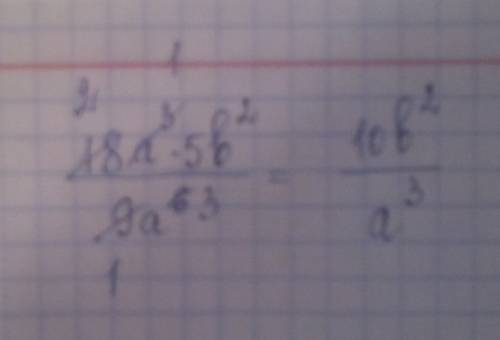 2 1
18a³·5b² / 9a⁶ ³ = 10b² / a³
1